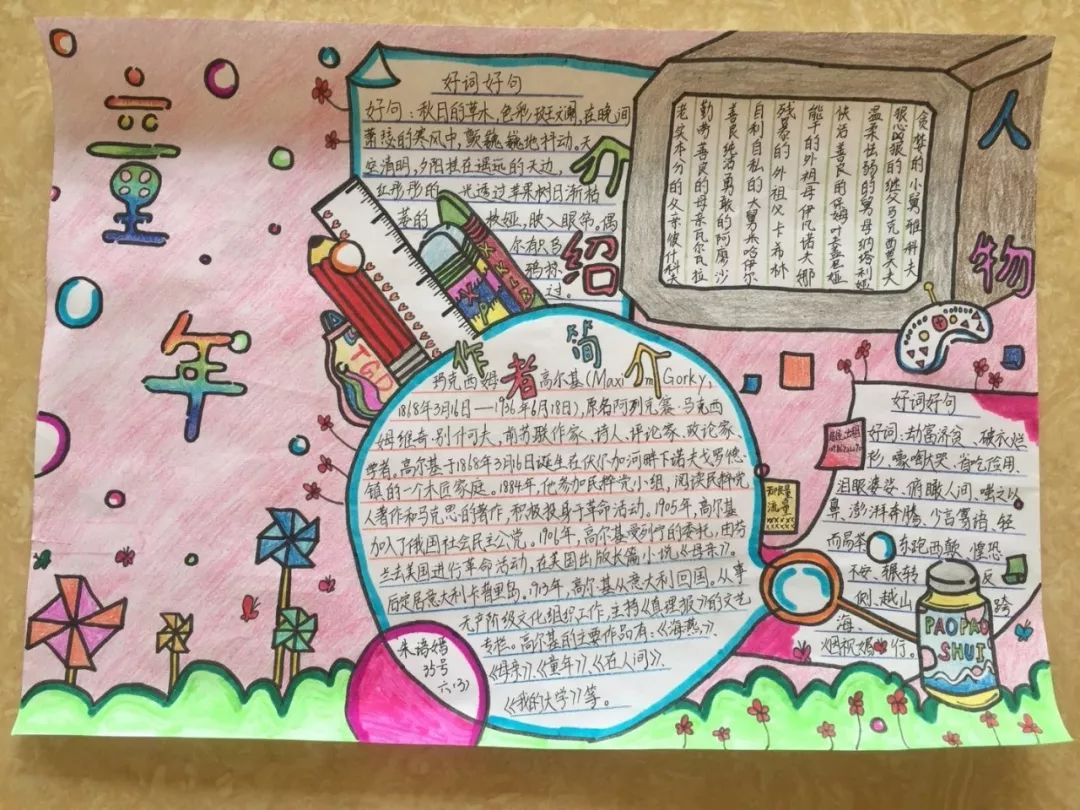 童年
好词好句
好句：秋日的草木，色彩斑斓，在晚间
萧瑟的寒风中，颤巍巍地抖动。天
空清明，夕阳挂在遥远的天边，
红彤彤的 光透过苹果树日渐枯
萎的 枝桠，映入眼帘。偶
尔有只乌
鸦掠
过。
人物
介绍
贪婪的小舅雅科夫
狠心凶狠的继父马克西莫夫
温柔怯弱的舅母纳塔利娅
快活善良的保姆叶夫根尼娅
能干的外祖母伊凡诺夫娜
残暴的外祖父卡希林
自利自私的大舅米哈伊尔
善良纯洁勇敢的阿廖沙
勤劳善良的母亲瓦尔瓦拉
老实本分的父亲彼什科夫
TGD
作者简介
玛克西姆 高尔基(Maxi m Gorky,
1868年3月16日—1936年6月18日),原名阿列克塞·马克西
姆维奇·别什可夫，前苏联作家、诗人、评论家、政论家、
学者。高尔基于1868年3月16日诞生在伏尔加河畔下诺夫戈罗德
镇的一个木匠家庭。1884年,他参加民粹党小组，阅读民粹党
人著作和马克思的著作，积极投身于革命活动。1905年，高尔基
加入了俄国社会民主公党。1906年，高尔基受列宁的委托，由芬
兰去美国进行革命活动，在美国出版长篇小说《母亲》。
后定居意大利卡普里岛。1913年，高尔基从意大利回国。从事
无产阶级文化组织工作，主持《真理报》的文艺
专栏。高尔基的主要作品有：《海燕》、
《母亲》、《童年》、《在人间》、
《我的大学》等。
朱语嫣
35号
六(3)
好词好句
好词：劫富济贫、破衣烂
衫、嚎啕大哭、省吃俭用、
泪眼婆娑、俯瞰人间、嗤之以
鼻、澎湃奔腾、少言寡语、轻
而易举、东跑西颠、惶恐
不安、辗转 反
侧、越山 跨
海、
烟视媚行。
无限量
流量
PAOPAO
SHUI